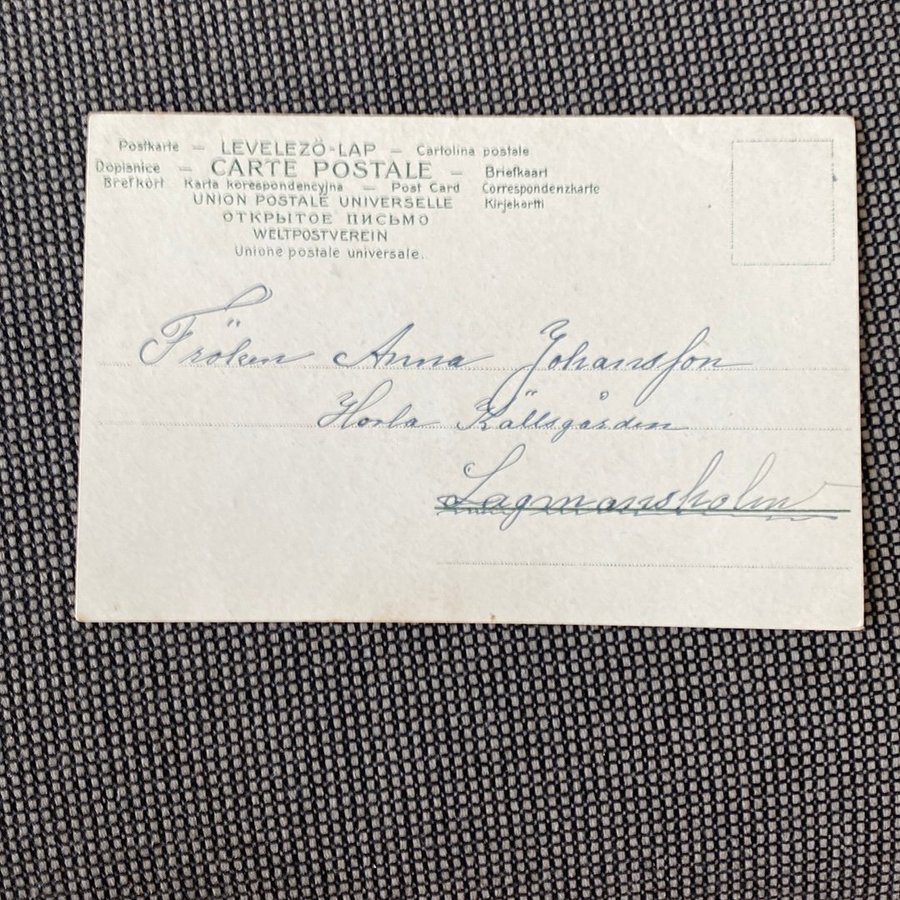 Postkarte – LEVELEZŐ-LAP – Cartolina postale
Dopisnice – CARTE POSTALE – Briefkaart
Brefkort Karta korespondencyjna – Post Card Correspondenzkarte
UNION POSTALE UNIVERSELLE Kirjekortti
ОТКРЫТОЕ ПИСЬМО
WELTPOSTVEREIN
Unione postale universale.
Fröken Anna Johansson
Horla Källsgården
Lagmansholm